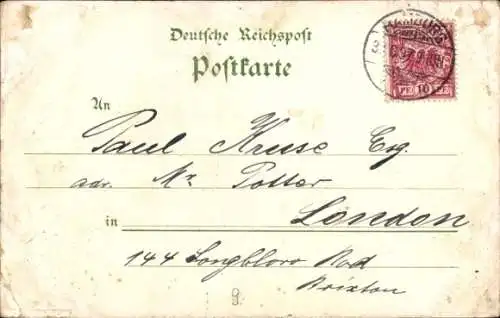 Deutsche Reichspost
Postkarte
HAMBURG
PF 10 PF
An
Paul Kruse Esq.
adr. Mr Potter
in London
144 Longbloro Rod
Brixton
9.